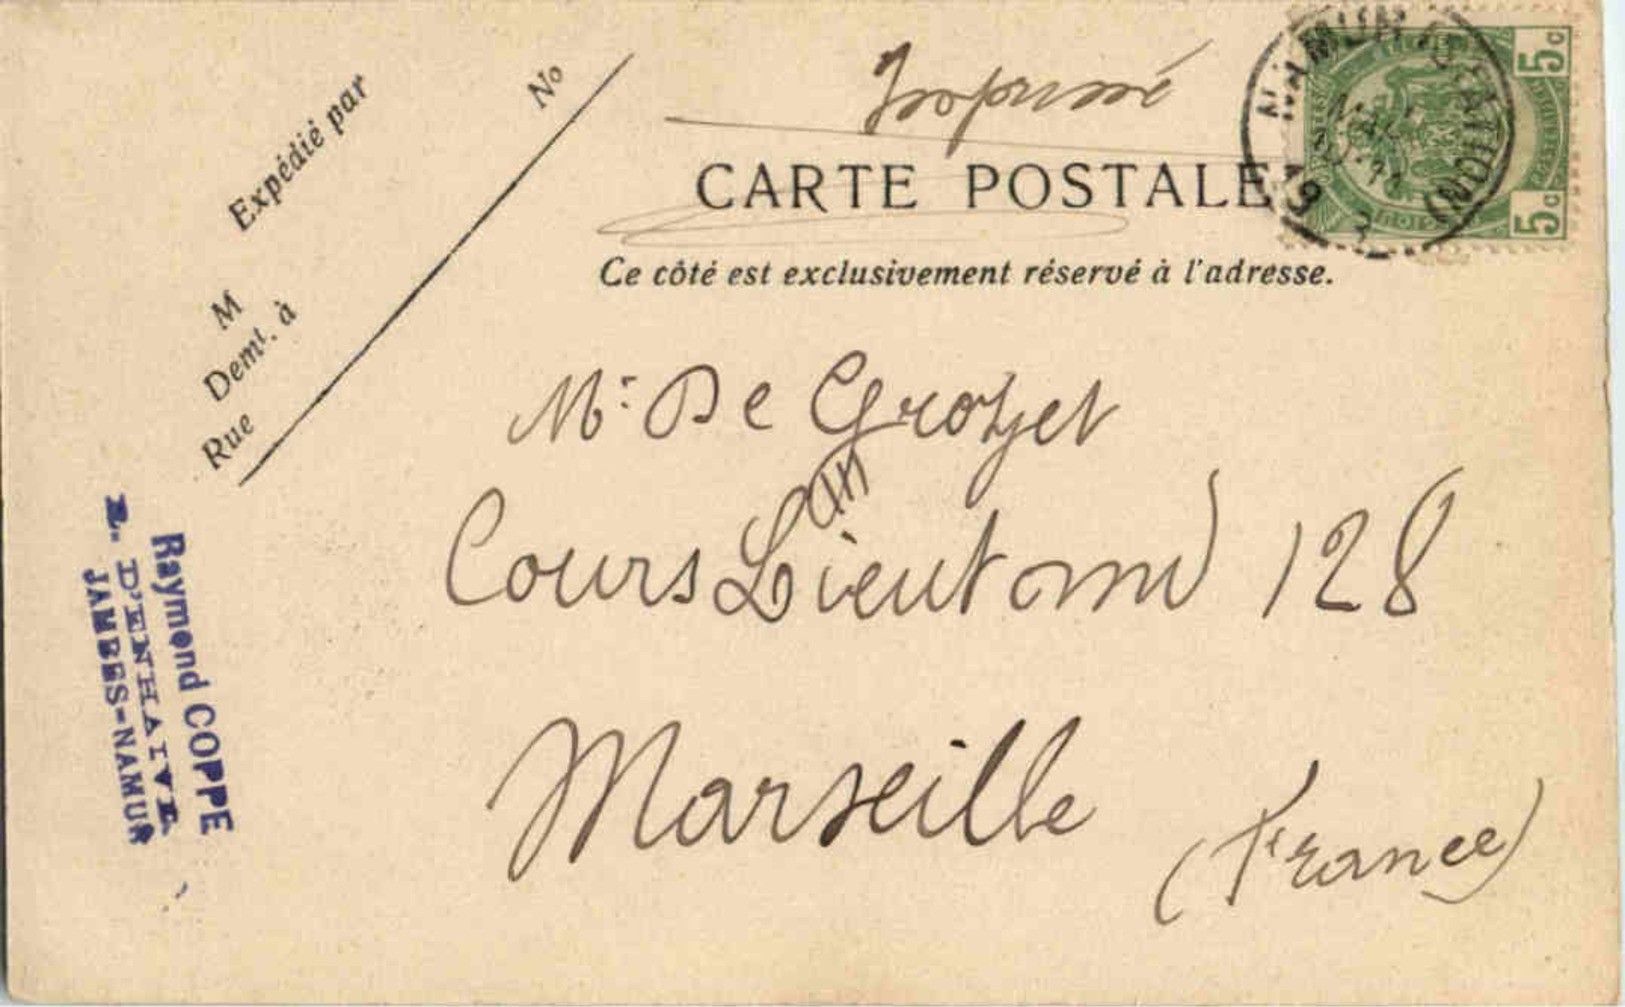 Expédié par
No
M
Demt. à
Rue
Imprimé
CARTE POSTALE
Ce côté est exclusivement réservé à l'adresse.
5c
5c
NAMUR (STATION)
Mr De Groyet
Cours Lieutaud 128
Marseille
(France)
Raymond COPPE
R. D'ENHAIVE.
JAMBES-NAMUR